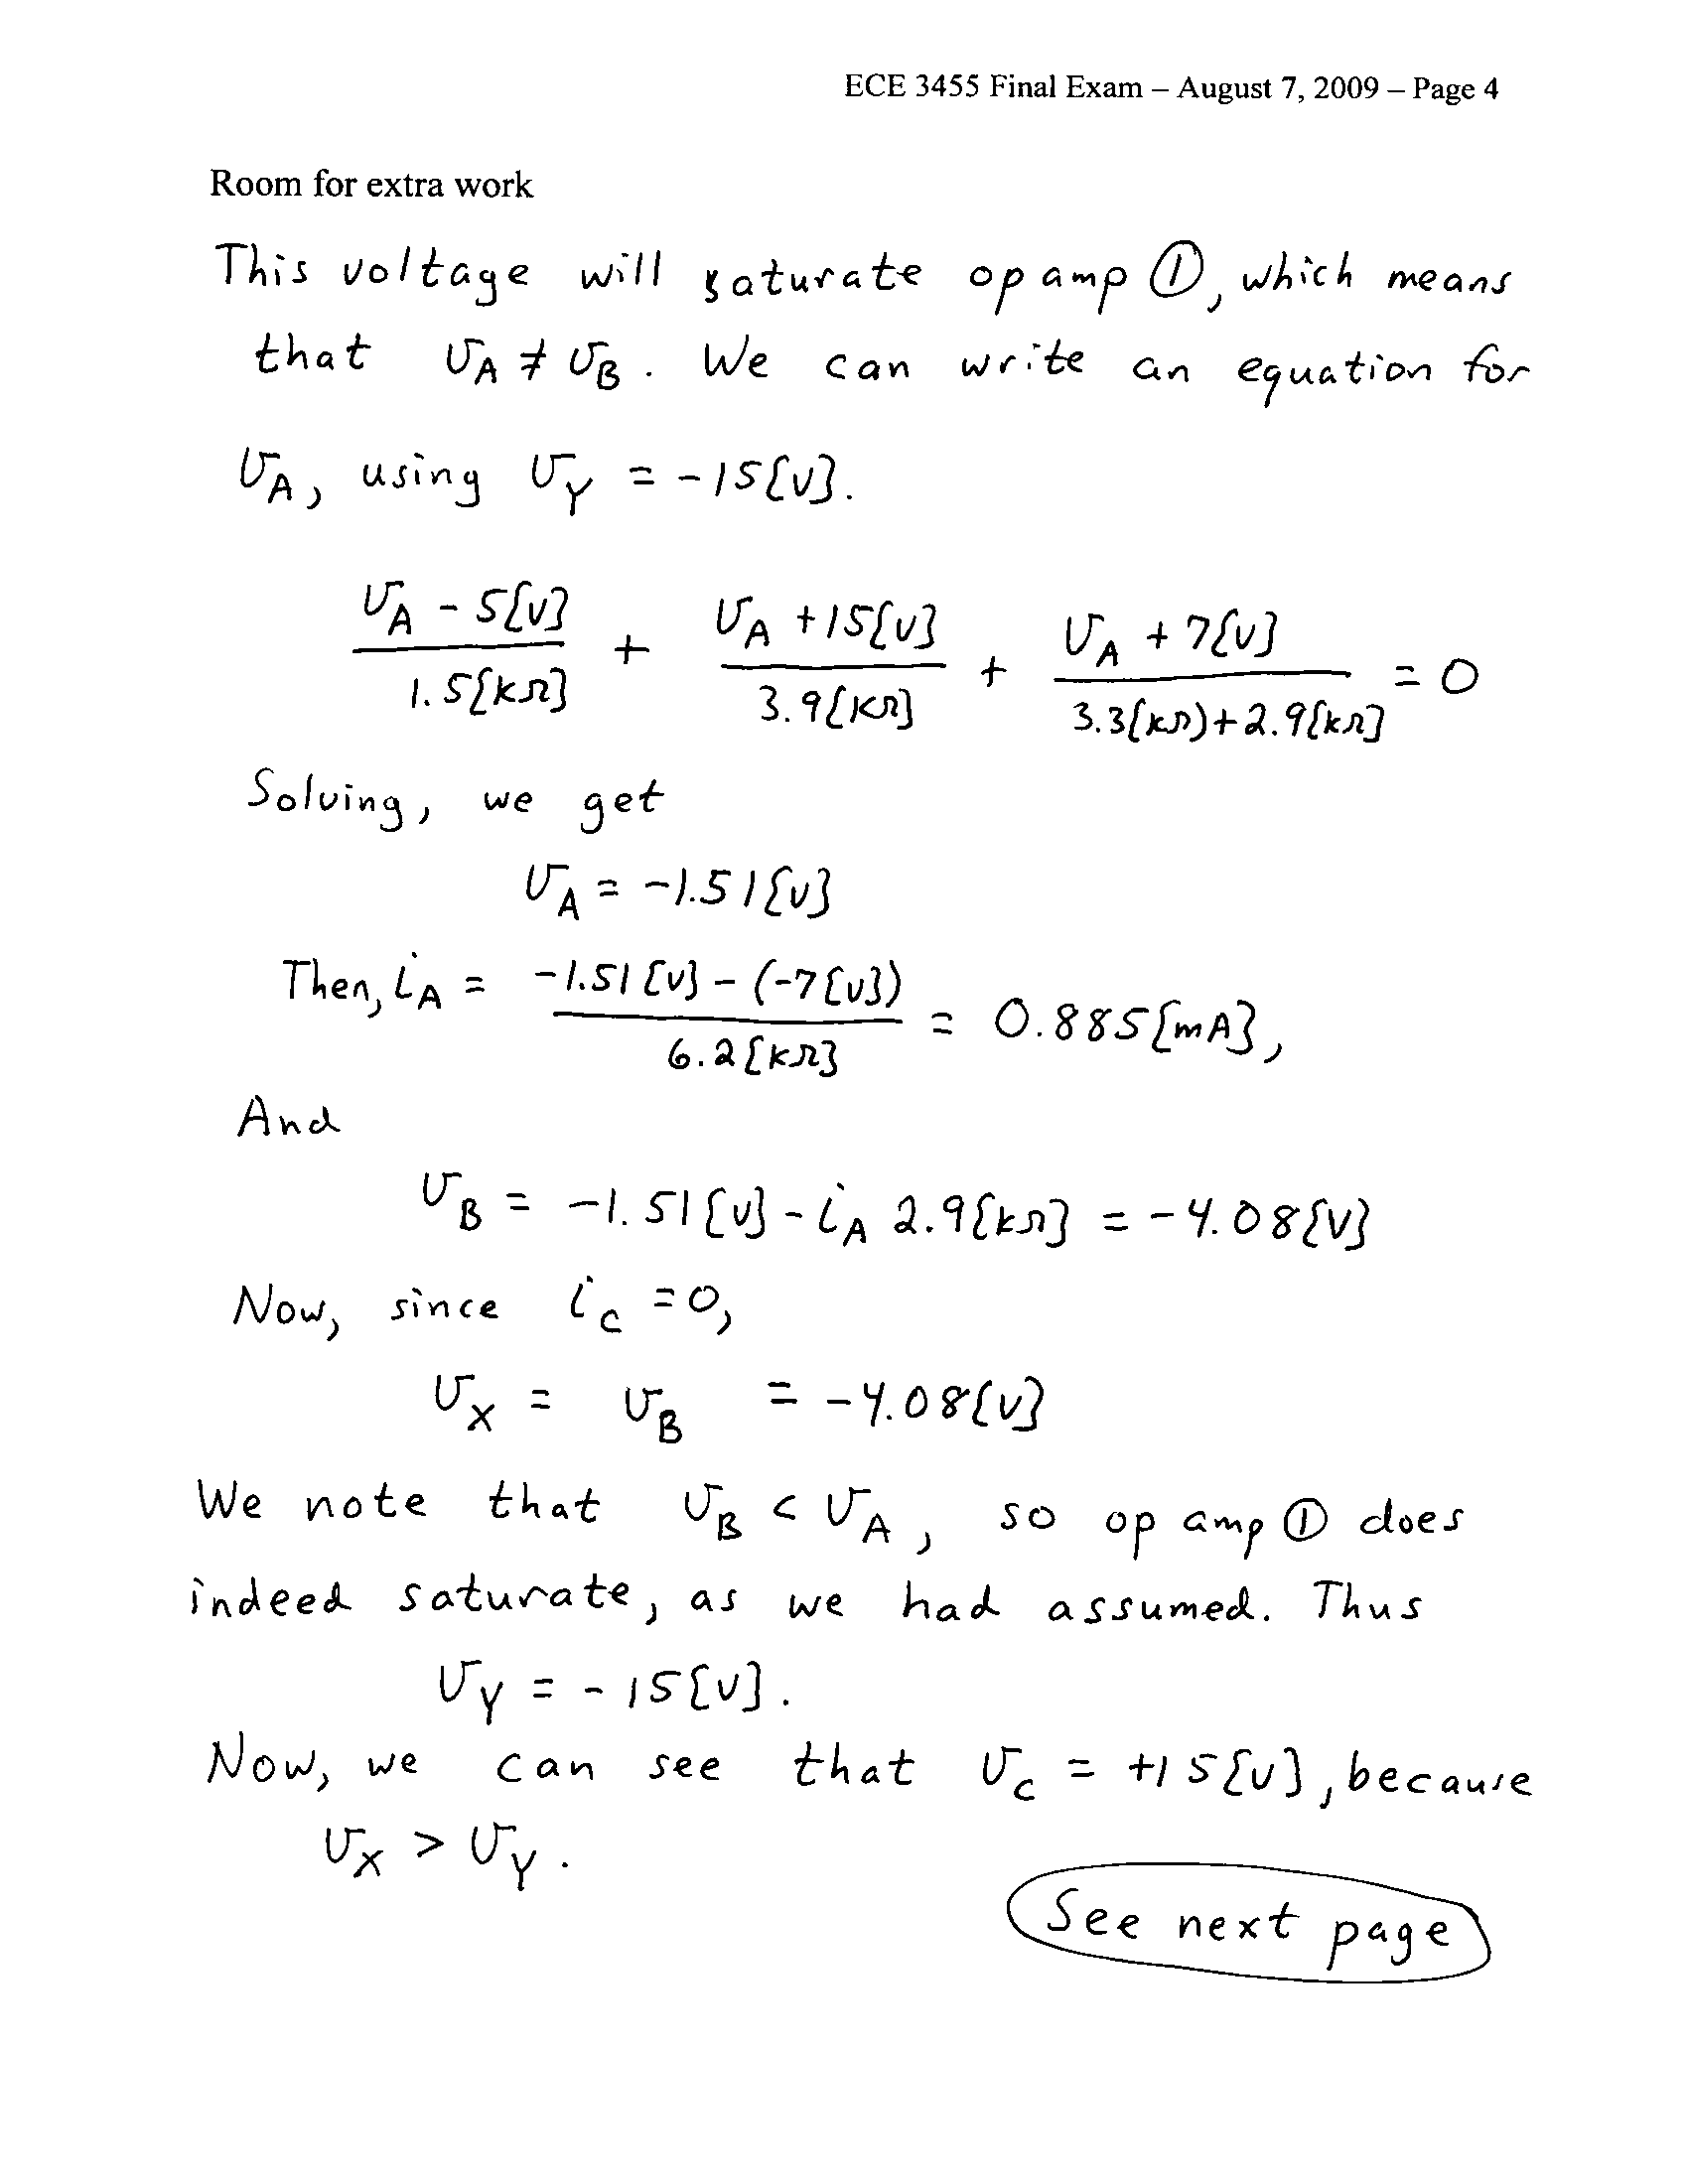 ECE 3455 Final Exam – August 7, 2009 – Page 4
Room for extra work
This voltage will saturate op amp ①, which means
that v_A ≠ v_B. We can write an equation for
v_A, using v_Y = -15[V].
(v_A - 5[V])/(1.5[kΩ]) + (v_A + 15[V])/(3.9[kΩ]) + (v_A + 7[V])/(3.3[kΩ]+2.9[kΩ]) = 0
Solving, we get
v_A = -1.51[V]
Then, i_A = (-1.51[V] - (-7[V]))/(6.2[kΩ]) = 0.885[mA],
And
v_B = -1.51[V] - i_A 2.9[kΩ] = -4.08[V]
Now, since i_C = 0,
v_X = v_B = -4.08[V]
We note that v_B < v_A, so op amp ① does
indeed saturate, as we had assumed. Thus
v_Y = -15[V].
Now, we can see that v_C = +15[V], because
v_X > v_Y.
See next page